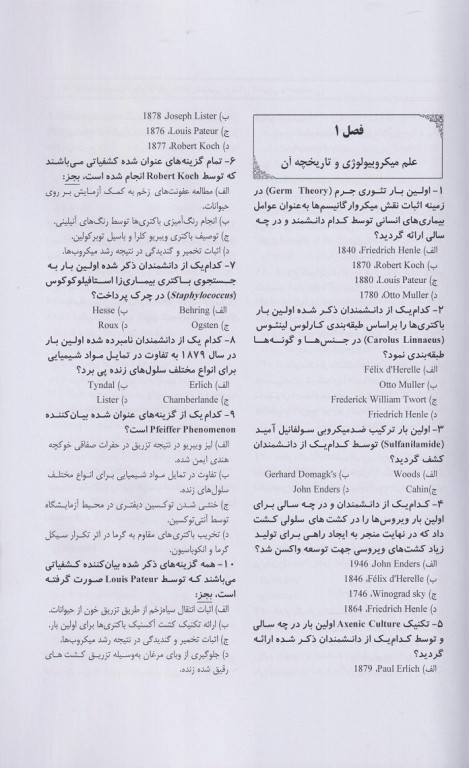 فصل ۱
علم میکروبیولوژی و تاریخچه آن
۱- اولین بار تئوری جرم (Germ Theory) در
زمینه اثبات نقش میکروارگانیسم‌ها به‌عنوان عوامل
بیماری‌های انسانی توسط کدام دانشمند و در چه
سالی ارائه گردید؟
الف) Friedrich Henle، 1840
ب) Robert Koch، 1870
ج) Louis Pateur، 1880
د) Otto Muller، 1780
۲- کدام‌یک از دانشمندان ذکر شده اولین بار
باکتری‌ها را براساس طبقه‌بندی کارلوس لینئوس
(Carolus Linnaeus) در جنس‌ها و گونه‌ها
طبقه‌بندی نمود؟
الف) Félix d'Herelle
ب) Otto Muller
ج) Frederick William Twort
د) Friedrich Henle
۳- اولین بار ترکیب ضدمیکروبی سولفانیل آمید
(Sulfanilamide) توسط کدام‌یک از دانشمندان
کشف گردید؟
الف) Woods ب) Gerhard Domagk's
ج) Cahin د) John Enders
۴- کدام‌یک از دانشمندان و در چه سالی برای
اولین بار ویروس‌ها را در کشت های سلولی کشت
داد که در نهایت منجر به ایجاد راهی برای تولید
زیاد کشت‌های ویروسی جهت توسعه واکسن شد؟
الف) John Enders 1946
ب) Félix d'Herelle، 1846
ج) Winograd sky، 1746
د) Friedrich Henle، 1864
۵- تکنیک Axenic Culture اولین بار در چه سالی
و توسط کدام‌یک از دانشمندان ذکر شده ارائه
گردید؟
الف) Paul Erlich، 1879
ب) Joseph Lister، 1878
ج) Louis Pateur، 1876
د) Robert Koch، 1877
۶- تمام گزینه‌های عنوان شده کشفیاتی می‌باشند
که توسط Robert Koch انجام شده است، بجز:
الف) مطالعه عفونت‌های زخم به کمک آزمایش بر روی
حیوانات.
ب) انجام رنگ‌آمیزی باکتری‌ها توسط رنگ‌های آنیلینی.
ج) توصیف باکتری ویبریو کلرا و باسیل توبرکولین.
د) اثبات تخمیر و گندیدگی در نتیجه رشد میکروب‌ها.
۷- کدام‌یک از دانشمندان ذکر شده اولین بار به
جستجوی باکتری بیماری‌زا استافیلوکوکوس
(Staphylococcus) در چرک پرداخت؟
الف) Behring ب) Hesse
ج) Ogsten د) Roux
۸- کدام یک از دانشمندان نامبرده شده اولین بار
در سال ۱۸۷۹ به تفاوت در تمایل مواد شیمیایی
برای انواع مختلف سلول‌های زنده پی برد؟
الف) Erlich ب) Tyndal
ج) Chamberlande د) Lister
۹- کدام یک از گزینه‌های عنوان شده بیان‌کننده
Pfeiffer Phenomenon است؟
الف) لیز ویبریو در نتیجه تزریق در حفرات صفاقی خوکچه
هندی ایمن شده.
ب) تفاوت در تمایل مواد شیمیایی برای انواع مختلف
سلول‌های زنده.
ج) خنثی شدن توکسین دیفتری در محیط آزمایشگاه
توسط آنتی‌توکسین.
د) تخریب باکتری‌های مقاوم به گرما در اثر تکرار سیکل
گرما و انکوباسیون.
۱۰- همه گزینه‌های ذکر شده بیان‌کننده کشفیاتی
می‌باشند که توسط Louis Pateur صورت گرفته
است، بجز:
الف) اثبات انتقال سیاه‌زخم از طریق تزریق خون از حیوانات.
ب) ارائه تکنیک کشت آکسنیک باکتری‌ها برای اولین بار.
ج) اثبات تخمیر و گندیدگی در نتیجه رشد میکروب‌ها.
د) جلوگیری از وبای مرغان به‌وسیله تزریق کشت های
رقیق شده زنده.